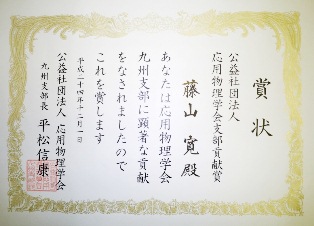 賞状
公益社団法人
応用物理学会支部貢献賞
藤山 寛殿
あなたは応用物理学会
九州支部に顕著な貢献
をなされましたので
これを賞します
平成二十四年十二月一日
公益社団法人 応用物理学会
九州支部長 平松信康